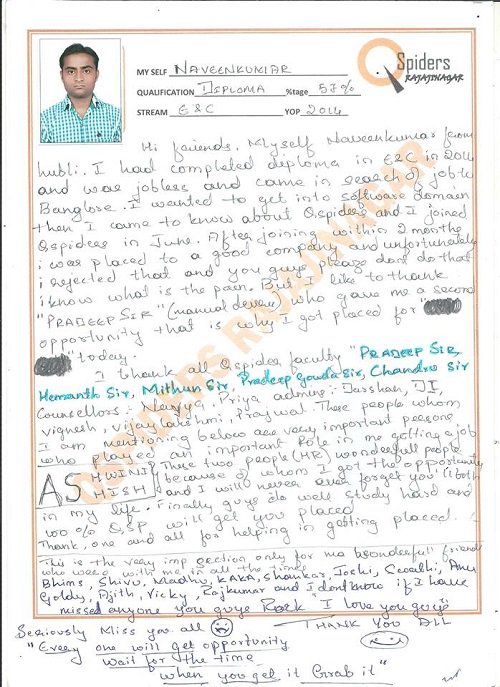 MY SELF NAVEENKUMAR
QUALIFICATION DIPLOMA %tage 57%
STREAM E&C YOP 2014
QSpiders
RAJAJINAGAR
Hi friends. Myself Naveenkumar from
hubli. I had completed diploma in E&C in 2014
and was jobless and came in search of job to
Banglore. I wanted to get into software domain
then I came to know about Qspiders and I joined
Qspiders in June. After joining within 2 months
i was placed to a good company and unfortunately
i rejected that and you guys please dont do that
i know what is the pain. But I like to thank
"PRADEEP SIR" (manual device) who gave me a second
opportunity that is why I got placed for "
" today.
I thank all Qspider faculty "PRADEEP SIR,
Hemanth Sir, Mithun Sir, Pradeep Gouda Sir, Chandru Sir
Counsellors: Navya, Priya admins: Darshan, DJ,
Vignesh, Vijaylakshmi, Prajwal. These people whom
I am mentioning below are very important persons
who played an important Role in me getting a job
ASHWINI
HISH
These two people (HR) wonderfull people
because of whom I got the opportunity
and I will never even forget you (both)
in my life. Finally guys do well study hard and
100% QSP will get you placed
Thank, one and all for helping in getting placed.
This is the very imp section only for ma wonderfull friends
who were with me in all the times
Bhims, Shivu, Madhu, KAKA, Shankar, Joshi, Swathi, Anu
Goldy, Ajith, Vicky, Rajkumar and I dont know if I have
missed anyone you guys Rock "I love you guys"
THANK YOU ALL
Seriously Miss you all
"Every one will get opportunity
wait for the time
when you get it Grab it"
QSPIDERS RAJAJINAGAR